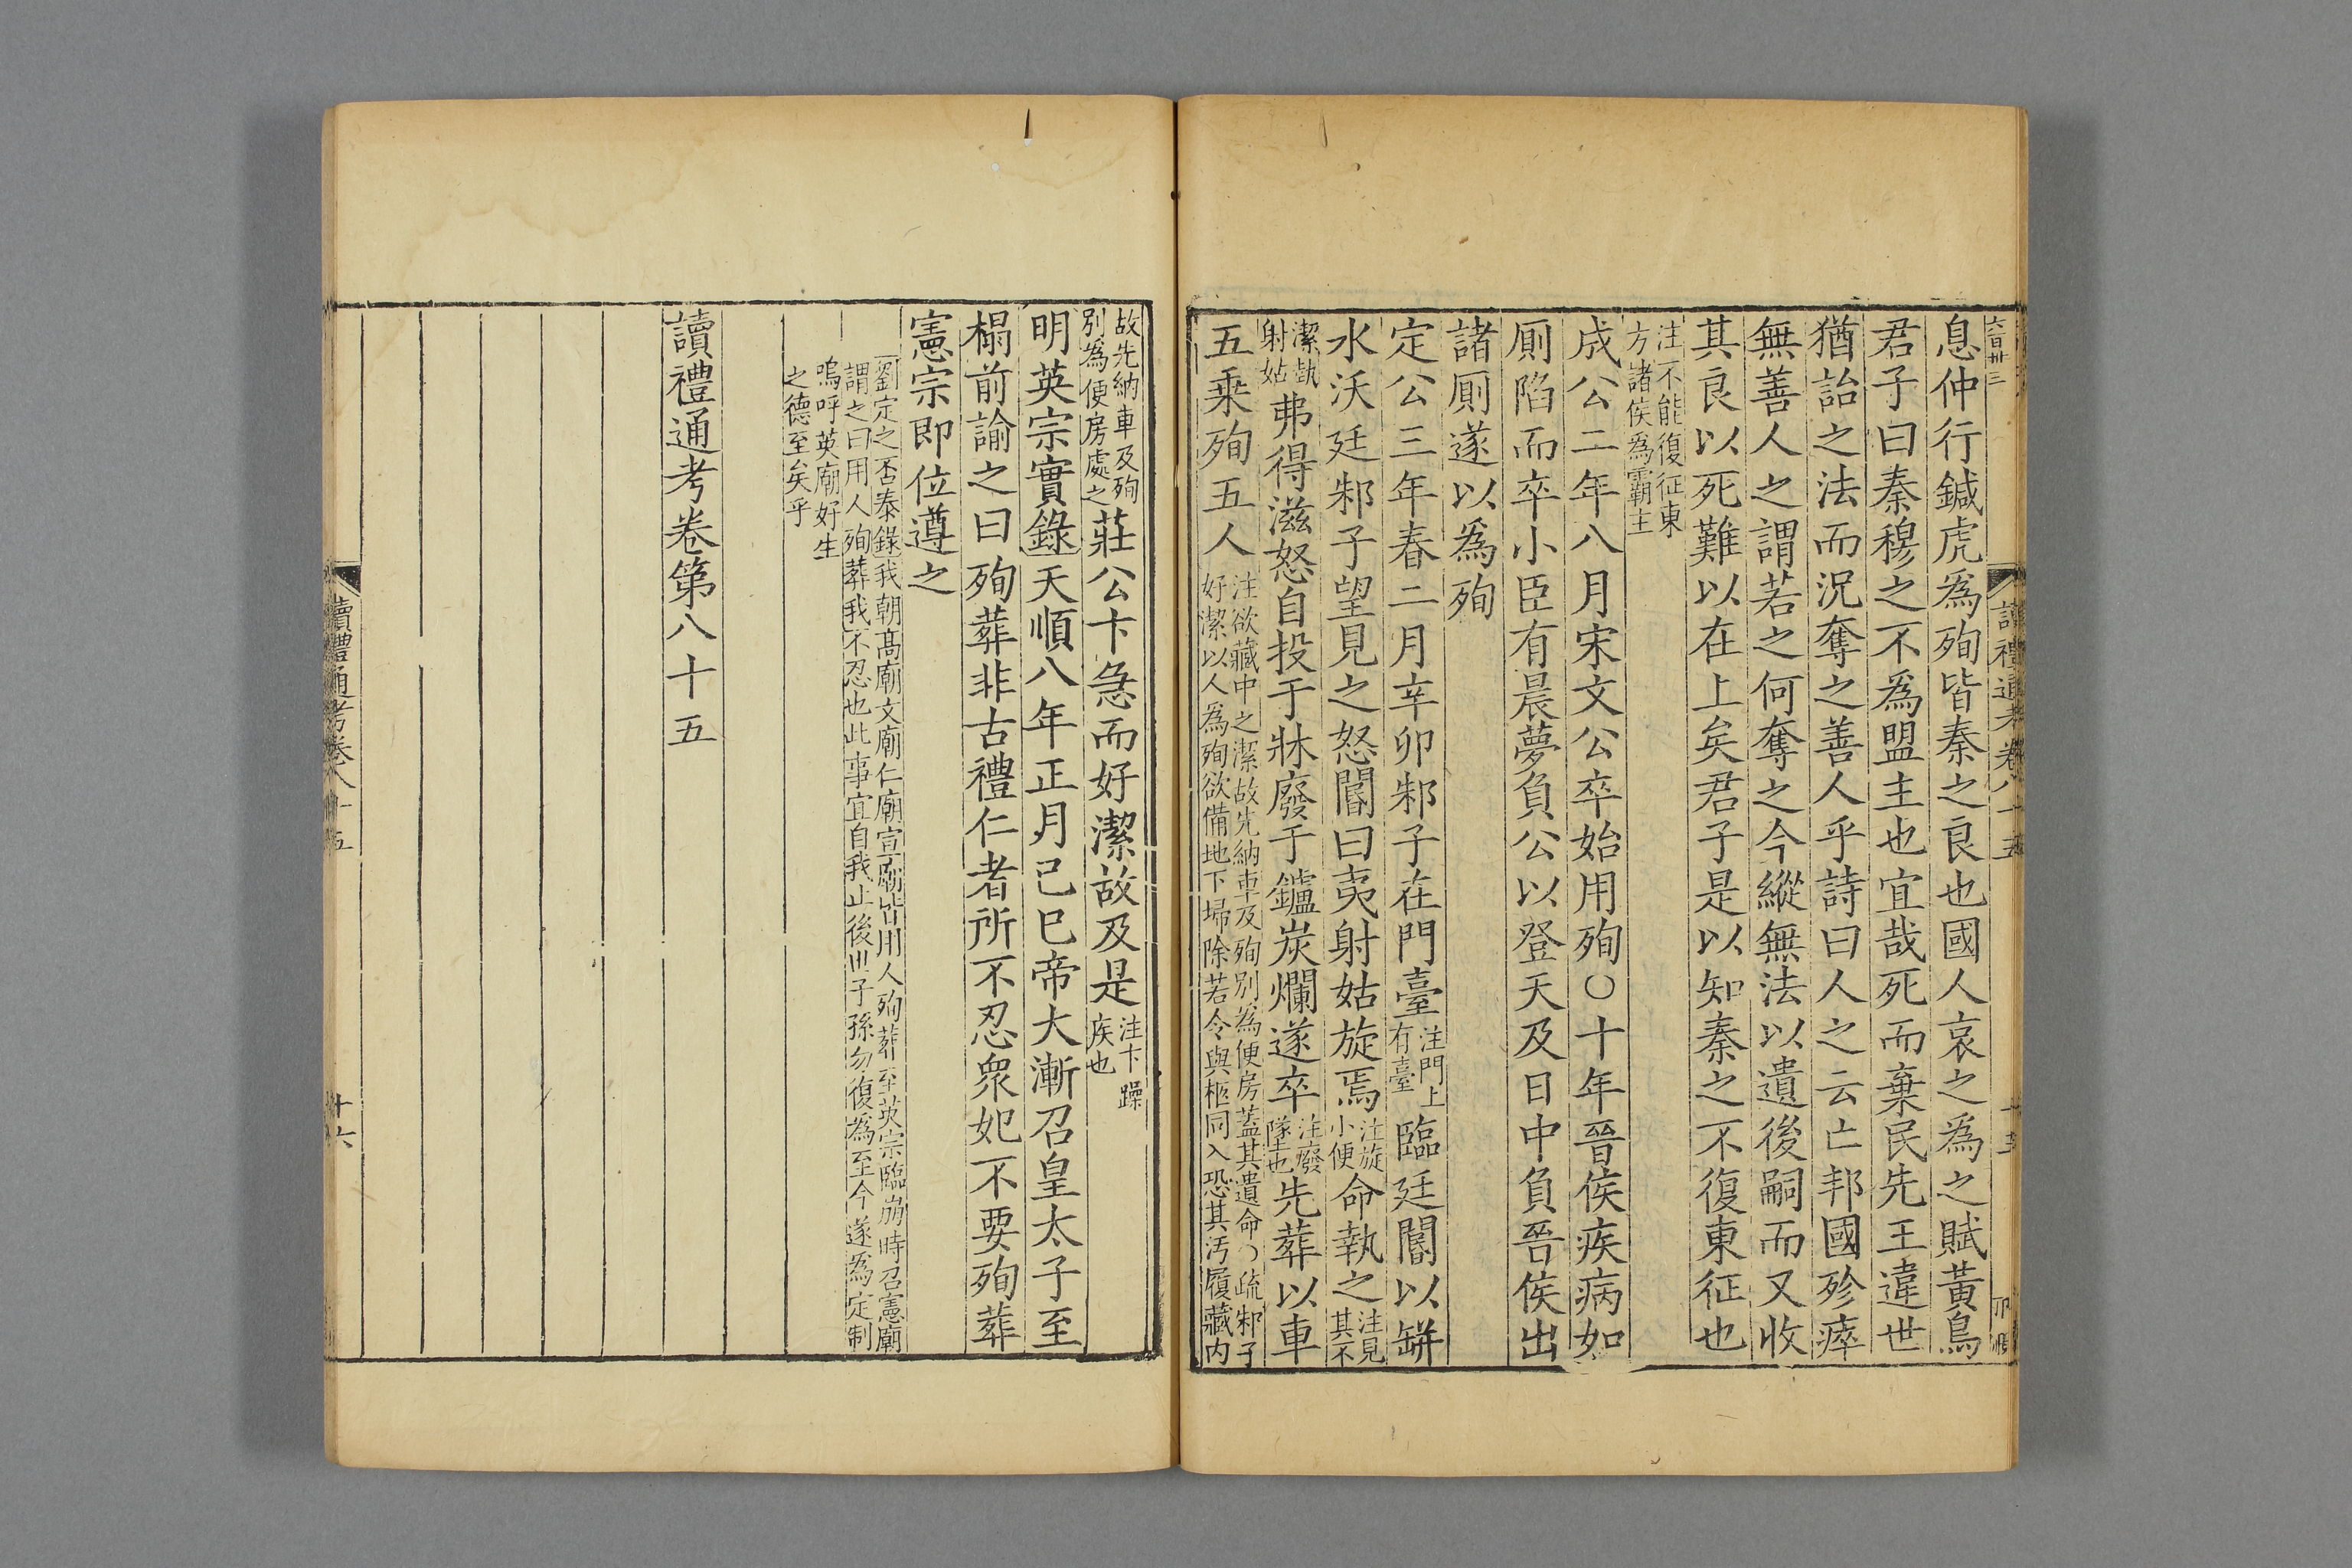 六百卅三
讀禮通考卷八十五
息仲行鍼虎爲殉皆秦之良也國人哀之爲之賦黃鳥
君子曰秦穆之不爲盟主也宜哉死而棄民先王違世
猶詒之法而況奪之善人乎詩曰人之云亡邦國殄瘁
無善人之謂若之何奪之今縱無法以遺後嗣而又收
其良以死難以在上矣君子是以知秦之不復東征也
注不能復征東
方諸侯爲霸主
成公二年八月宋文公卒始用殉○十年晉侯疾病如
厠陷而卒小臣有晨夢負公以登天及日中負晉侯出
諸厠遂以爲殉
定公三年春二月辛卯邾子在門臺
注門上
有臺
臨廷閽以缾
水沃廷邾子望見之怒閽曰夷射姑旋焉
注旋
小便
命執之
注見
其不
潔執
射姑
弗得滋怒自投于牀廢于鑪炭爛遂卒
注廢
墜也
先葬以車
五乘殉五人
注欲藏中之潔故先納車及殉別爲便房蓋其遺命○疏邾子
好潔以人爲殉欲備地下埽除若令與柩同入恐其汚履藏内
故先納車及殉
別爲便房處之
莊公卞急而好潔故及是
注卞躁
疾也
明英宗實錄天順八年正月己巳帝大漸召皇太子至
榻前諭之曰殉葬非古禮仁者所不忍衆妃不要殉葬
憲宗即位遵之
劉定之否泰錄我朝高廟文廟仁廟宣廟皆用人殉葬至英宗臨崩時召憲廟
謂之曰用人殉葬我不忍也此事宜自我止後世子孫勿復爲至今遂爲定制
嗚呼英廟好生
之德至矣乎
讀禮通考卷第八十五
讀禮通考卷八十五
十六